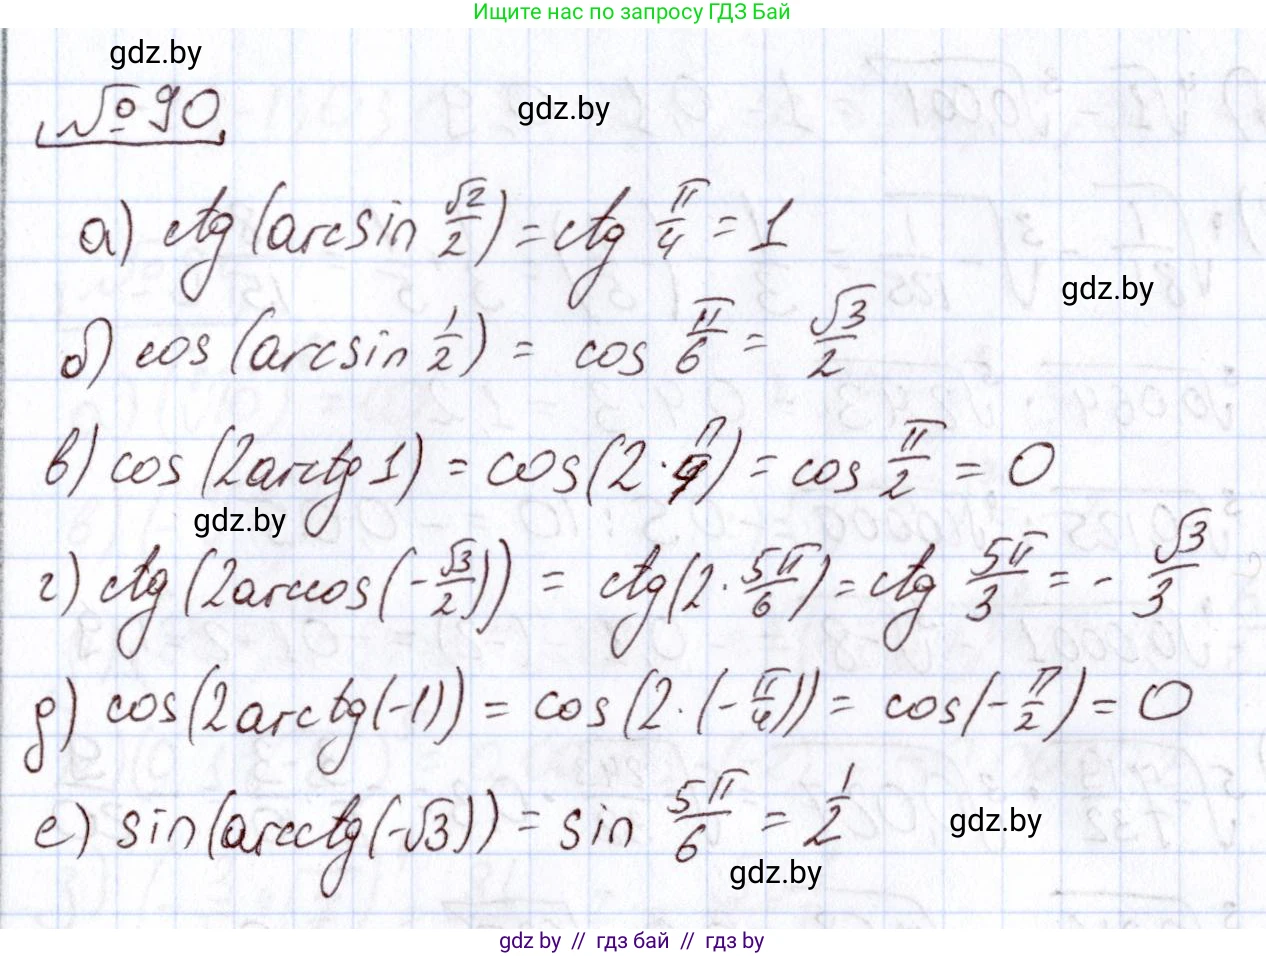 Ищите нас по запросу ГДЗ Бай
gdz.by
№90
gdz.by
а) ctg(arcsin √2/2) = ctg π/4 = 1
gdz.by
б) cos(arcsin 1/2) = cos π/6 = √3/2
в) cos(2arctg 1) = cos(2·π/4) = cos π/2 = 0
gdz.by
г) ctg(2arccos(-√3/2)) = ctg(2·5π/6) = ctg 5π/3 = -√3/3
д) cos(2arctg(-1)) = cos(2·(-π/4)) = cos(-π/2) = 0
е) sin(arcctg(-√3)) = sin 5π/6 = 1/2
gdz.by
gdz.by
gdz by // гдз бай // гдз by